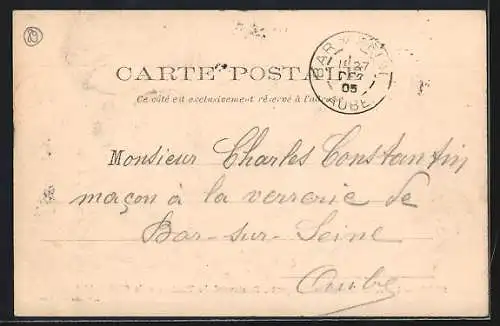 CARTE POSTALE
Ce côté est exclusivement réservé à l'adresse
BAR-S-SEINE
27
DEC
05
AUBE
Monsieur Charles Constantin
maçon à la verrerie de
Bar-sur-Seine
Aube